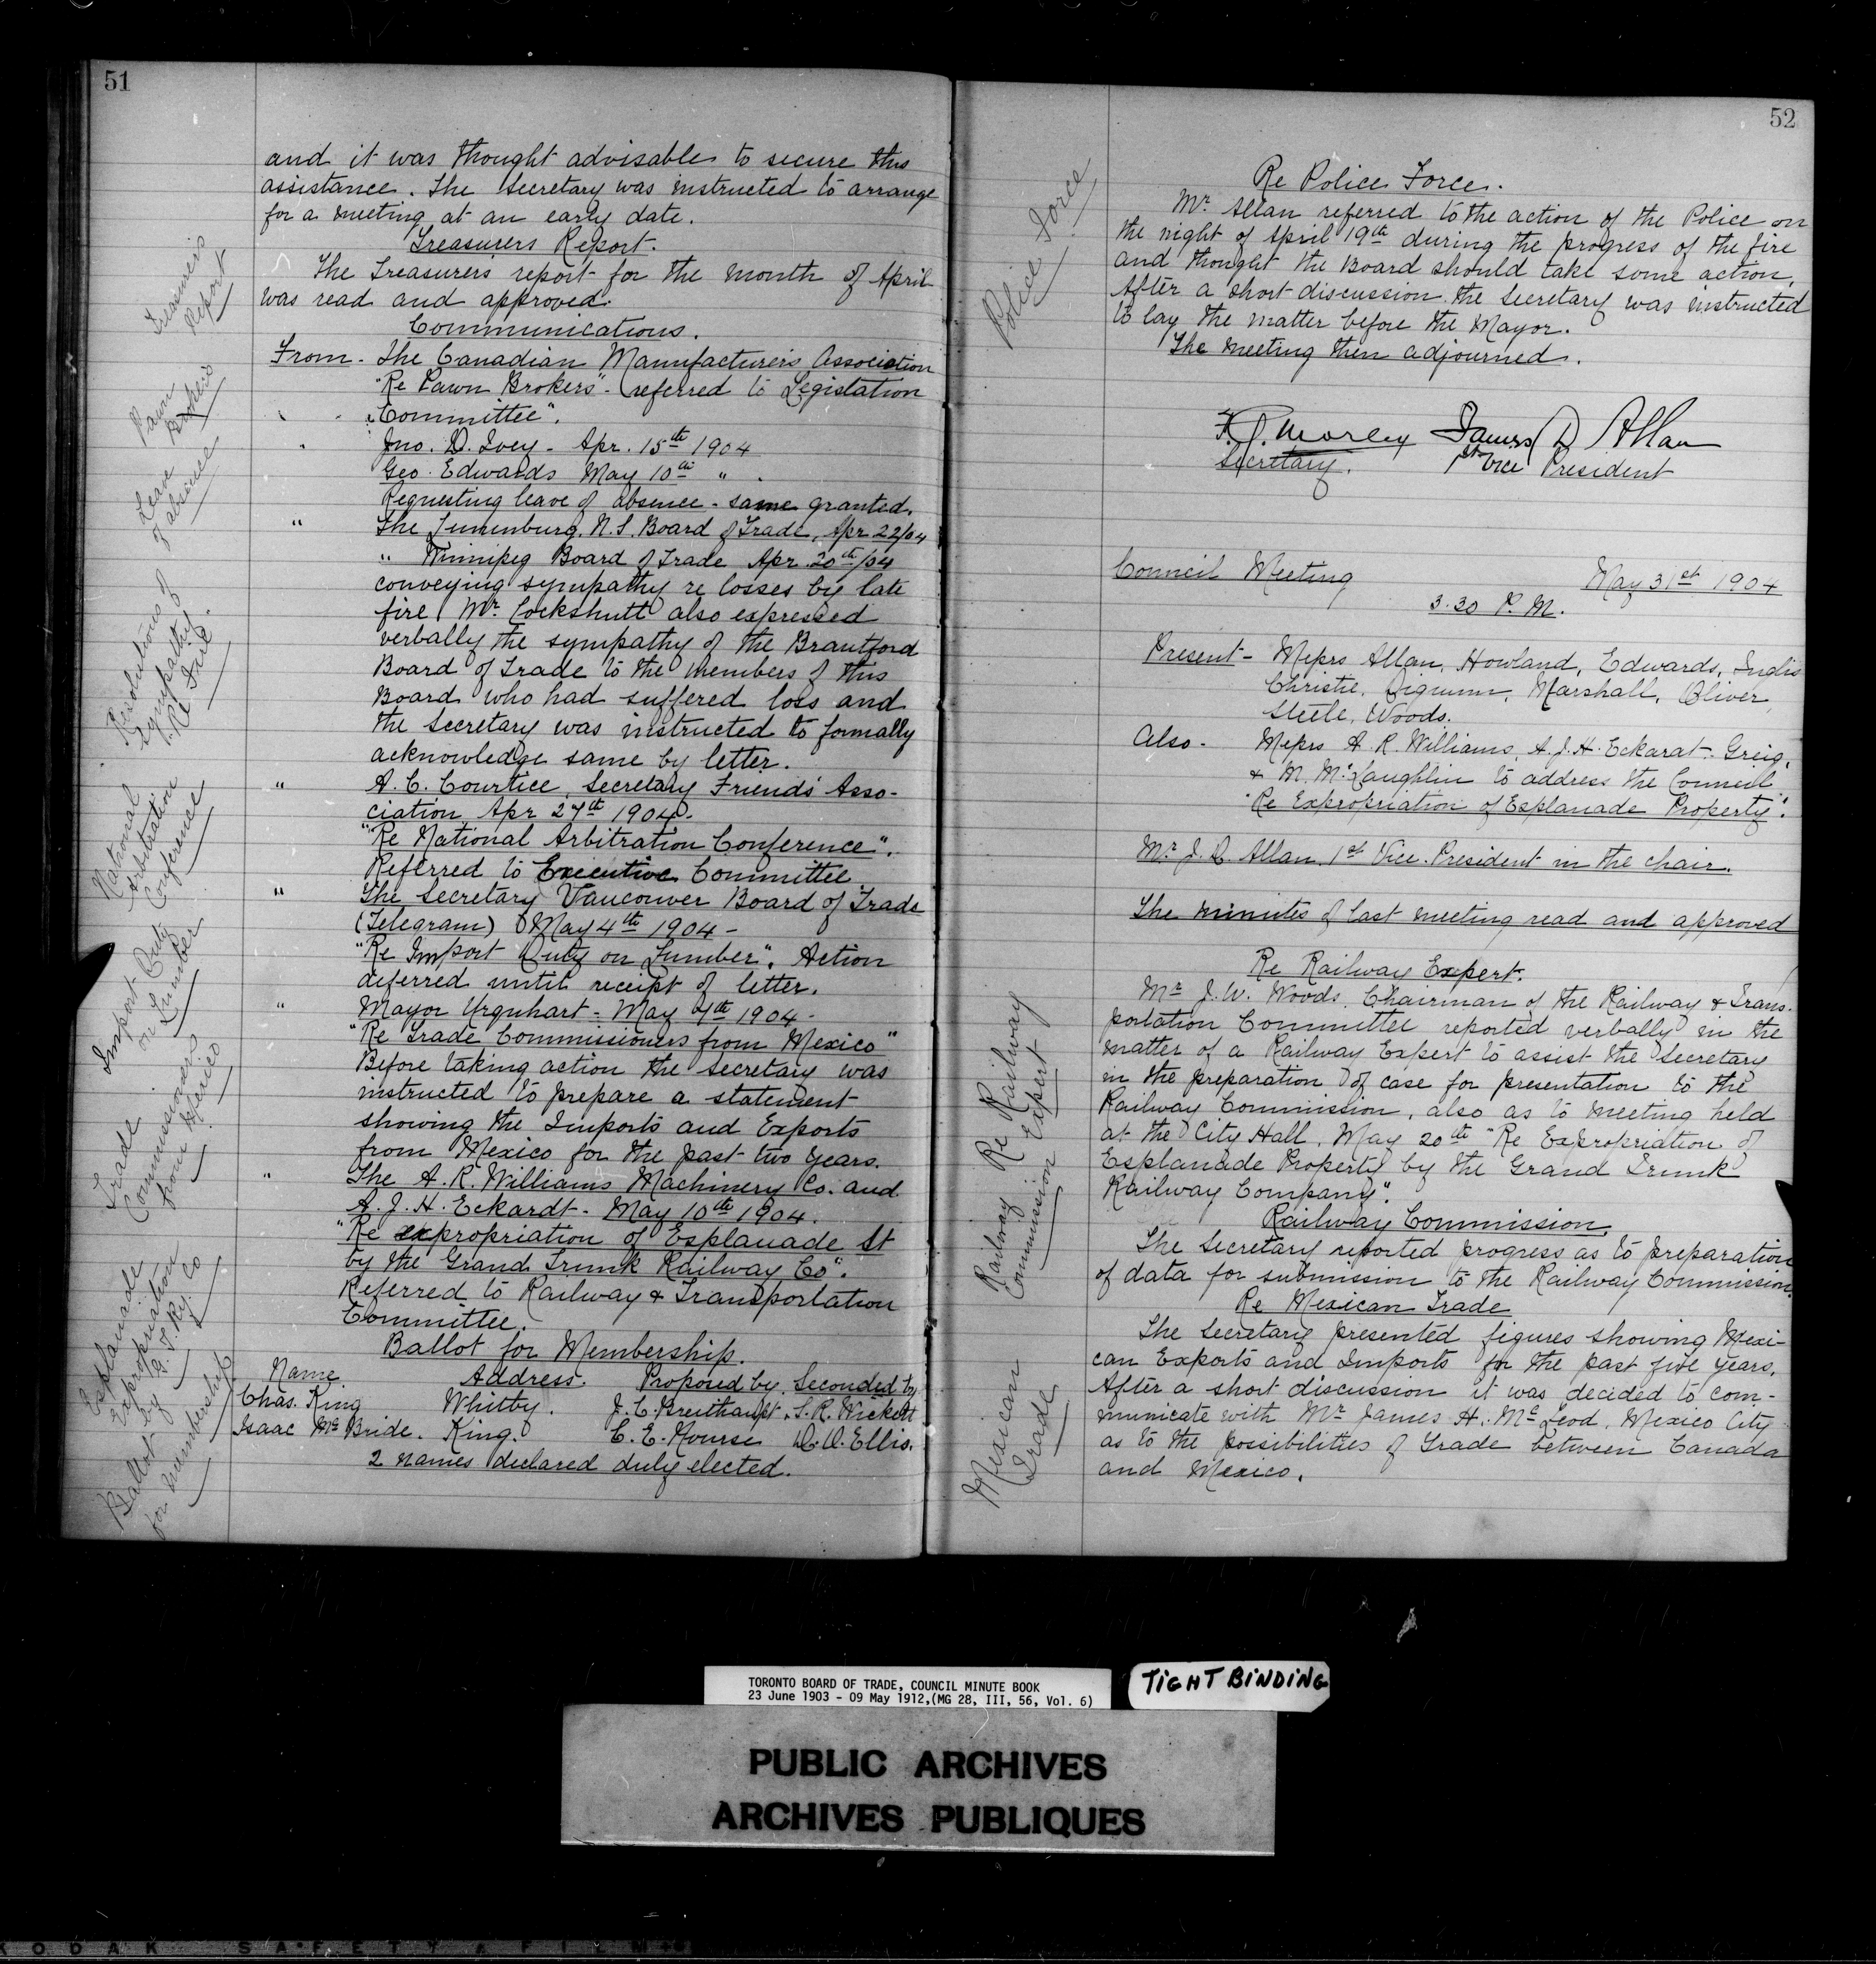 51
and it was thought advisable to secure this
assistance. The Secretary was instructed to arrange
for a meeting at an early date.
Treasurers Report.
The Treasurers report for the month of April
was read and approved.
Communications.
From - The Canadian Manufacturers Association
"Re Pawn Brokers" - referred to Legislation
Committee".
" Jno. D. Ivey - Apr. 15th 1904
Geo. Edwards May 10th "
Requesting leave of absence - same granted.
" The Lunenburg, N.S. Board of Trade, Apr 22/04
" Winnipeg Board of Trade Apr. 20th/04
conveying sympathy re losses by late
fire, Mr. Cockshutt also expressed
verbally the sympathy of the Brantford
Board of Trade to the members of this
Board who had suffered loss and
the Secretary was instructed to formally
acknowledge same by letter.
" A. C. Courtice, Secretary Friends' Asso-
ciation, Apr 27th 1904 -
"Re National Arbitration Conference".
Referred to Executive Committee
" The Secretary Vancouver Board of Trade
(Telegram) May 4th 1904 -
"Re Import Duty on Lumber". Action
deferred until receipt of letter.
" Mayor Urquhart - May 7th 1904 -
"Re Trade Commissioners from Mexico"
Before taking action the Secretary was
instructed to prepare a statement
showing the Imports and Exports
from Mexico for the past two years.
" The A. R. Williams Machinery Co. and
A. J. H. Eckardt - May 10th 1904.
"Re expropriation of Esplanade St
by the Grand Trunk Railway Co".
Referred to Railway & Transportation
Committee.
Ballot for Membership.
Name Address. Proposed by. Seconded by
Chas. King Whitby. J. C. Breithaupt. S. R. Wickett
Isaac McBride. King. C. E. Nourse D. O. Ellis.
2 names declared duly elected.
Treasurer's
Report
Pawn
Brokers
Leave
of absence
Resolutions of
Sympathy
Re Fire.
National
Arbitration
Conference
Import Duty
on Lumber
Trade
Commissioners
from Mexico
Esplanade
Expropriation
by G. T. Ry. Co
Ballot
for membership
52
Re Police Force.
Mr. Allan referred to the action of the Police on
the night of April 19th during the progress of the fire
and thought the Board should take some action,
After a short discussion the Secretary was instructed
to lay the matter before the Mayor.
The meeting then adjourned.
F. G. Morley James D Allan
Secretary. 1st Vice President
Council Meeting May 31st 1904
3.30 P.M.
Present - Messrs Allan, Howland, Edwards, Inglis
Christie, Marshall, Oliver,
Steele, Woods.
Also - Messrs A. R. Williams, A. J. H. Eckardt - Greig,
& M. McLaughlin to address the Council
"Re Expropriation of Esplanade Property".
Mr J. D. Allan, 1st Vice-President in the chair.
The minutes of last meeting read and approved
Re Railway Expert.
Mr J. W. Woods, Chairman of the Railway & Trans-
portation Committee reported verbally in the
matter of a Railway Expert to assist the Secretary
in the preparation of case for presentation to the
Railway Commission, also as to meeting held
at the City Hall, May 20th "Re Expropriation of
Esplanade Property by the Grand Trunk
Railway Company".
Railway Commission.
The Secretary reported progress as to preparation
of data for submission to the Railway Commission.
Re Mexican Trade
The Secretary presented figures showing Mexi-
can Exports and Imports for the past five years.
After a short discussion it was decided to com-
municate with Mr James H. McLeod, Mexico City
as to the possibilities of Trade between Canada
and Mexico.
Police Force
Re Railway
Expert
Railway
Commission
Mexican
Trade
TORONTO BOARD OF TRADE, COUNCIL MINUTE BOOK
23 June 1903 - 09 May 1912,(MG 28, III, 56, Vol. 6)
TIGHT BINDING
PUBLIC ARCHIVES
ARCHIVES PUBLIQUES
KODAK SAFETY FILM